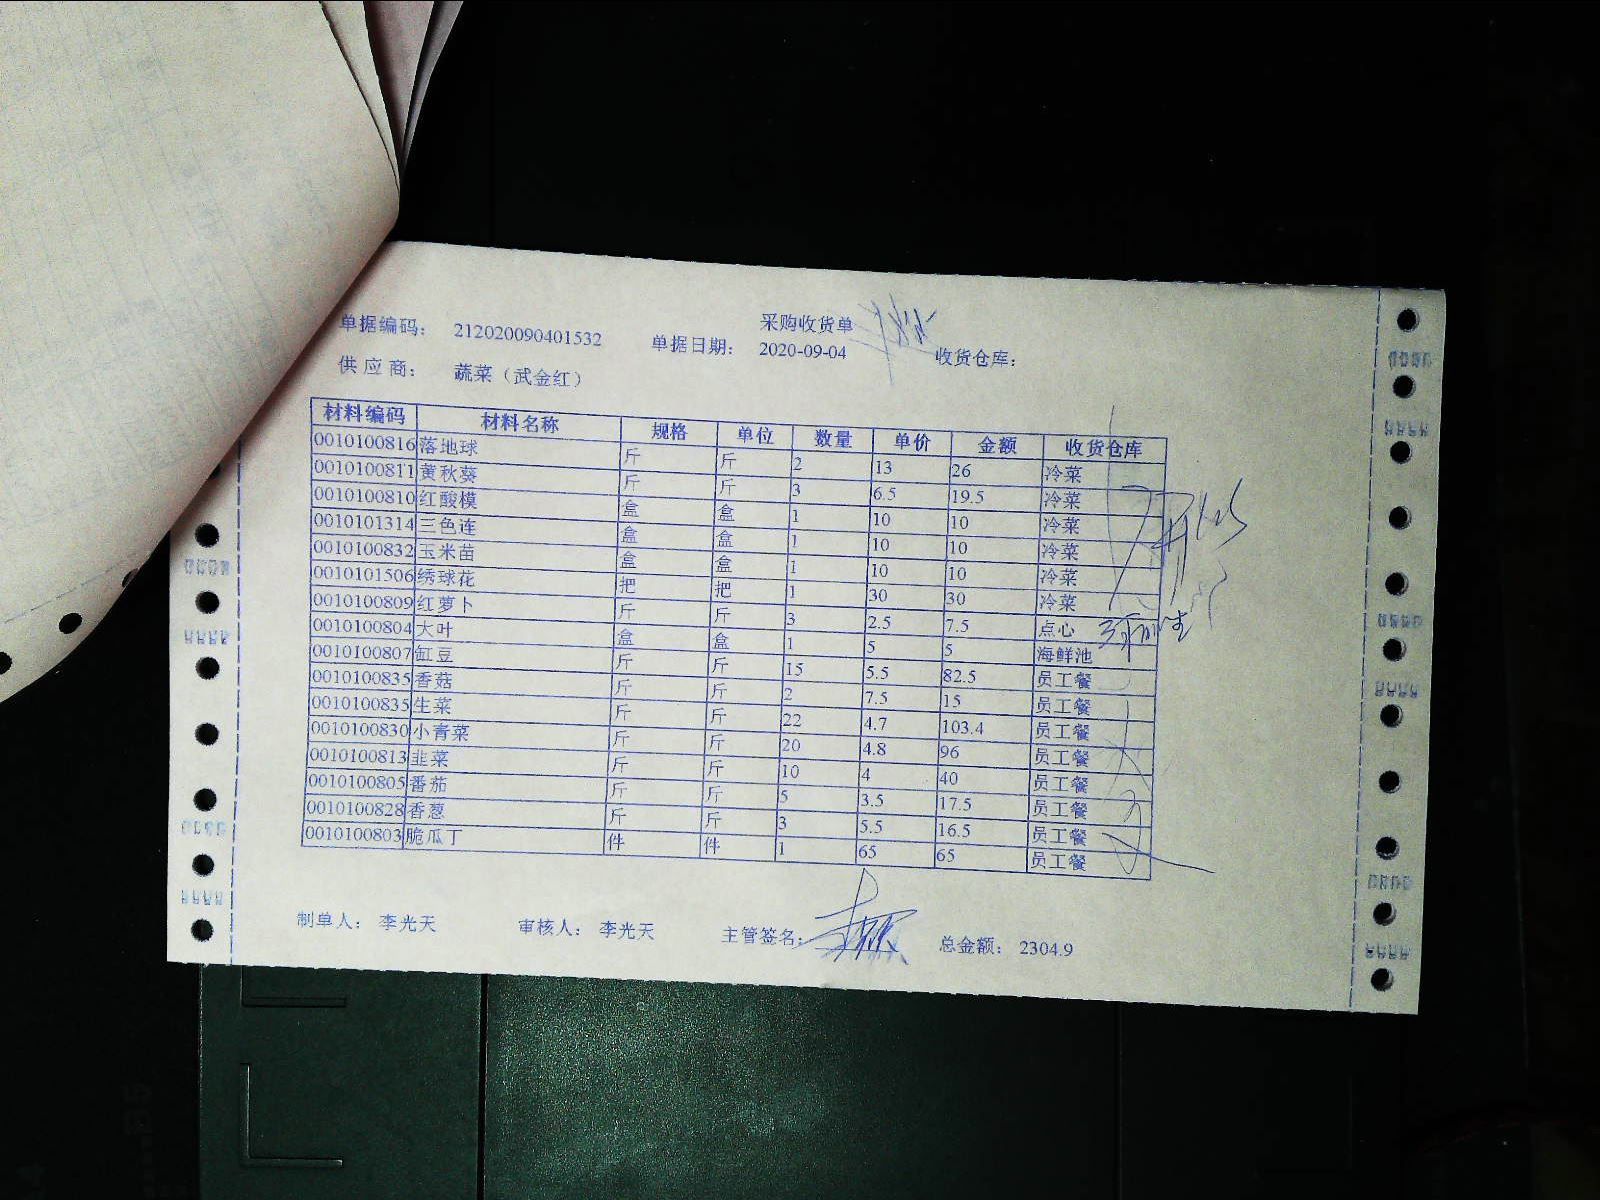 采购收货单
单据编码： 212020090401532 单据日期： 2020-09-04 收货仓库：
供 应 商： 蔬菜（武金红）
材料编码 材料名称 规格 单位 数量 单价 金额 收货仓库
0010100816 落地球 斤 斤 2 13 26 冷菜
0010100811 黄秋葵 斤 斤 3 6.5 19.5 冷菜
0010100810 红酸模 盒 盒 1 10 10 冷菜
0010101314 三色连 盒 盒 1 10 10 冷菜
0010100832 玉米苗 盒 盒 1 10 10 冷菜
0010101506 绣球花 把 把 1 30 30 冷菜
0010100809 红萝卜 斤 斤 3 2.5 7.5 点心
0010100804 大叶 盒 盒 1 5 5 海鲜池
0010100807 缸豆 斤 斤 15 5.5 82.5 员工餐
0010100835 香菇 斤 斤 2 7.5 15 员工餐
0010100835 生菜 斤 斤 22 4.7 103.4 员工餐
0010100830 小青菜 斤 斤 20 4.8 96 员工餐
0010100813 韭菜 斤 斤 10 4 40 员工餐
0010100805 番茄 斤 斤 5 3.5 17.5 员工餐
0010100828 香葱 斤 斤 3 5.5 16.5 员工餐
0010100803 脆瓜丁 件 件 1 65 65 员工餐
制单人： 李光天 审核人： 李光天 主管签名： 总金额： 2304.9